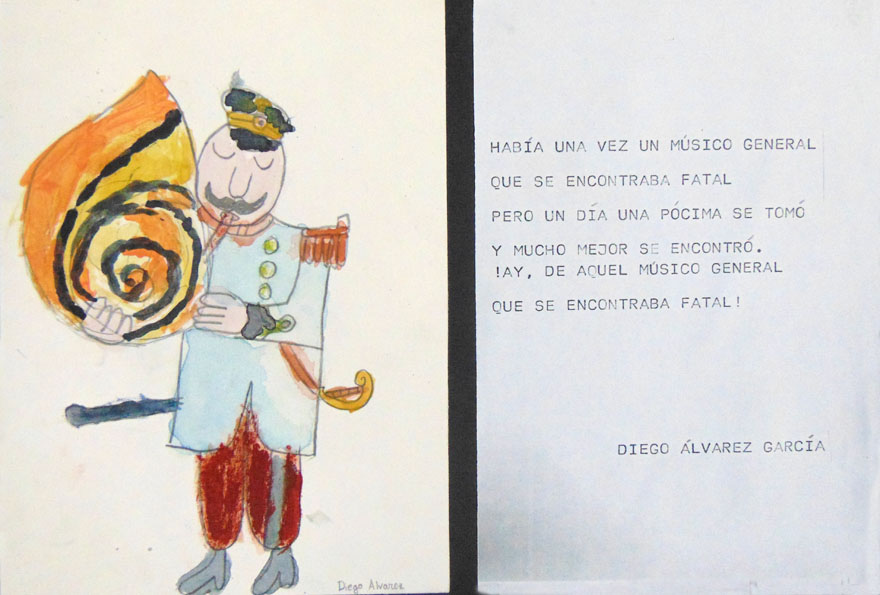 HABÍA UNA VEZ UN MÚSICO GENERAL
QUE SE ENCONTRABA FATAL
PERO UN DÍA UNA PÓCIMA SE TOMÓ
Y MUCHO MEJOR SE ENCONTRÓ.
!AY, DE AQUEL MÚSICO GENERAL
QUE SE ENCONTRABA FATAL!
DIEGO ÁLVAREZ GARCÍA
Diego Alvarez